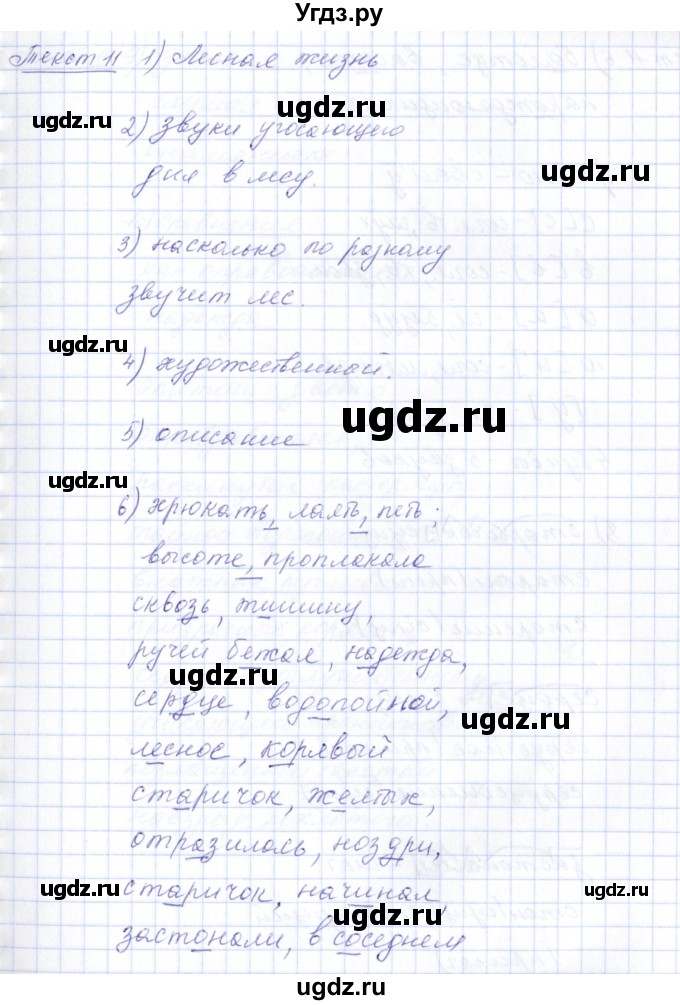 Угдз.ру
Текст 11 1) Лесная жизнь
ugdz.ru
2) звуки угасающего
дня в лесу.
ugdz.ru
3) насколько по разному
звучит лес.
ugdz.ru
4) художественной.
ugdz.ru
5) описание
ugdz.ru
6) хрюкать, лаять, петь;
высоте, проплакала
сквозь, тишину,
ручей бежал, надежда,
ugdz.ru
сердце, водопойной,
ugdz.ru
лесное, корявый
старичок, желтых,
отразилось, ноздри,
ugdz.ru
старичок, начинал,
ugdz.ru
застонали, в соседнем